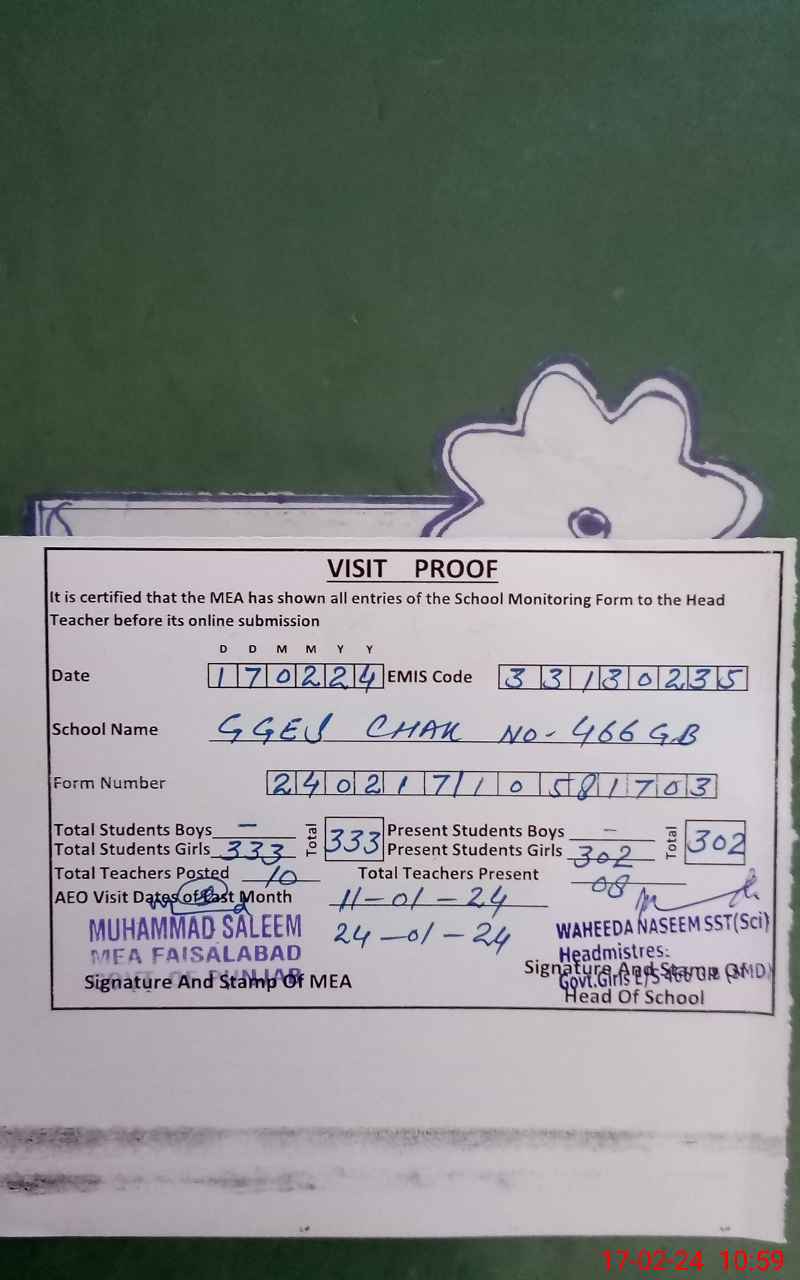 VISIT PROOF
It is certified that the MEA has shown all entries of the School Monitoring Form to the Head
Teacher before its online submission
D D M M Y Y
Date 170224 EMIS Code 33130235
School Name GGES CHAK NO- 466 GB
Form Number 24021710581703
Total Students Boys – Total 333 Present Students Boys – Total 302
Total Students Girls 333 Present Students Girls 302
Total Teachers Posted 10 Total Teachers Present 08
AEO Visit Dates of Last Month 11-01-24
24-01-24
MUHAMMAD SALEEM
MEA FAISALABAD
GOVT. OF PUNJAB
Signature And Stamp Of MEA
WAHEEDA NASEEM SST(Sci)
Headmistres:
Govt.Girls E/S 466 GB (SMD)
Signature And Stamp Of
Head Of School
17-02-24 10:59